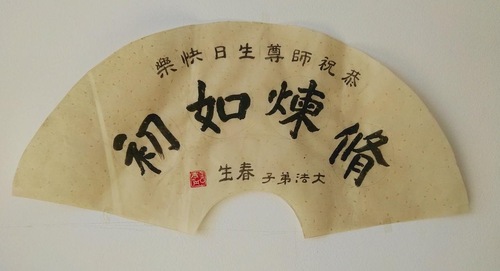 恭祝師尊生日快樂
脩煉如初
大法弟子 春生